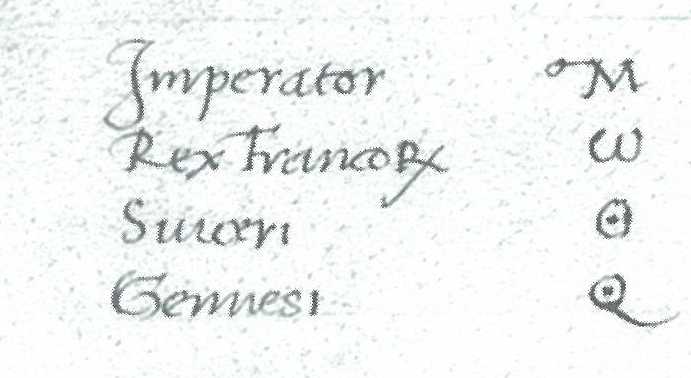 Imperator M
Rex Franco℞ ω
Suiceri ʘ
Genuesi Q